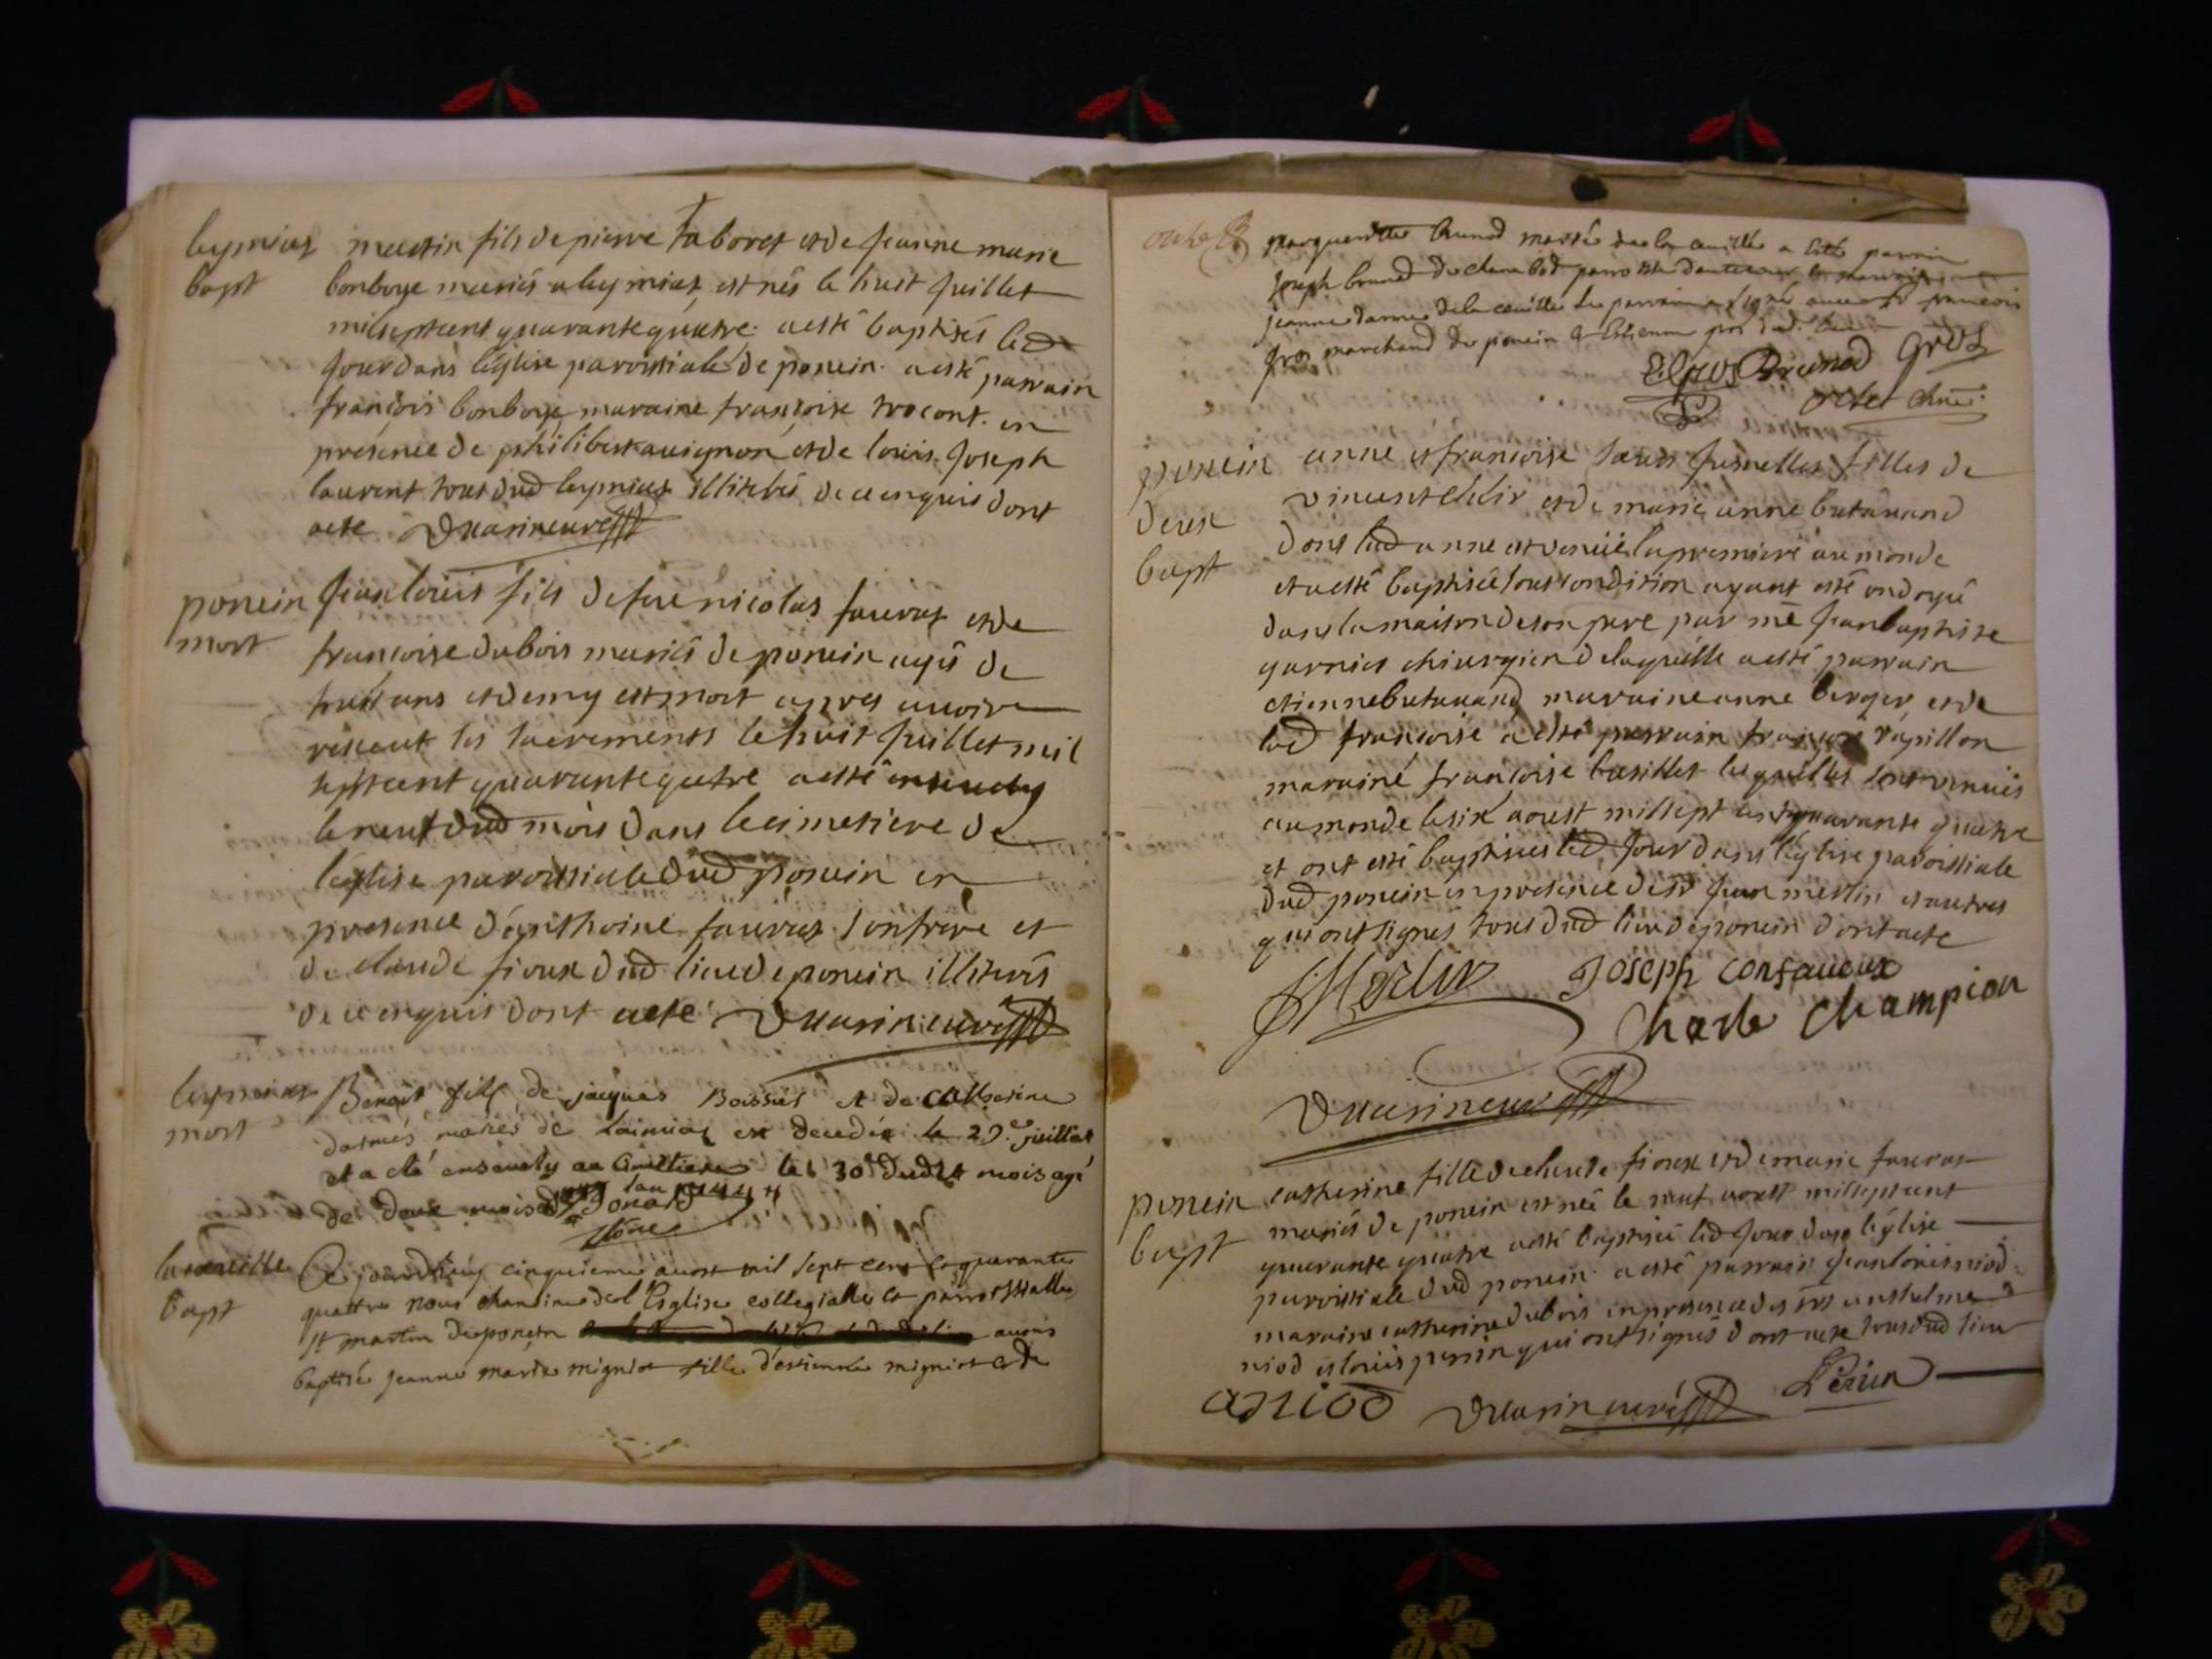 leymias
bapt
martin fils de pierre taboret et de jeanne marie
bonboye mariés a leymias, est nés le huit juillet
mil sept cent quarante quatre. a esté baptisés led
jour dans l'église paroissiale de poncin. a esté parrain
françois bonboye, maraine françoise trocont. en
présence de philibert auignon et de louis joseph
laurent tous dud leymias illiterés de ce enquis dont
acte
poncin
mort
jean louis fils de feu nicolas fauras et de
francoise dubois mariés de poncin agés de
huit ans et demy est mort apres auoir
reseut les sacrements le huit juillet mil
sept cent quarante quatre a esté enseuely
le neuf dud mois dans le cimetiere de
l'église paroissiale dud poncin en
presence d'anthoine fauras son frere et
de claude sioux dud lieu de poncin illiterés
de ce enquis dont acte
leymias
mort
Benoit fils de jacques Boissiet et de catherine
mariés de Laimias est decedé le 29e juillet
et a eté enseuely au Cimetiere le 30e dudit mois agé
de deux mois l'an 1744
la cueille
bapt
Ce jourdhuy cinquieme aoust mil sept cent et quarante
quattre nous chanoine de l'Eglise collegialle et parroissialle
st martin de poncin auons
baptisé jeanne marie migniot fille d'estienne migniot et de
marguerite brunod mariés de la cueille a esté parrain
joseph brunod de parroisse
jeanne de la cueille le parrain a signé auec sr francois
gros marchand de poncin &
Brunod Gros
poncin
deux
bapt
anne et francoise sœurs jumelles filles de
vincent et de marie anne butauand
dont lad anne est venuë la premiere au monde
et a esté baptisée sous condition ayant esté ondoyé
dans la maison de son pere par me jean baptiste
garnier chirurgien de laquelle a esté parrain
etienne butauand maraine anne berger, et de
lad francoise a esté parrain françois rapillon
maraine francoise basillet lesquelles sont venuës
au monde le six aoust mil sept cent quarante quatre
et ont esté baptisées led jour dans l'église paroissiale
dud poncin en presence de sr jean merlin et autres
qui ont signés tous dud lieu de poncin dont acte
Merlin Joseph consaueux
Charle Champion
poncin
bapt
catherine fille de claude sioux et de marie fauras
mariés de poncin est née le neuf aoust mil sept cent
quarante quatre a esté baptisée led jour dans l'église
paroissiale dud poncin. a esté parrain jean louis niod
maraine catherine dubois en presence des srs anthelme
niod et louis perrin qui ont signés dont acte tous dud lieu
aniod Perrin